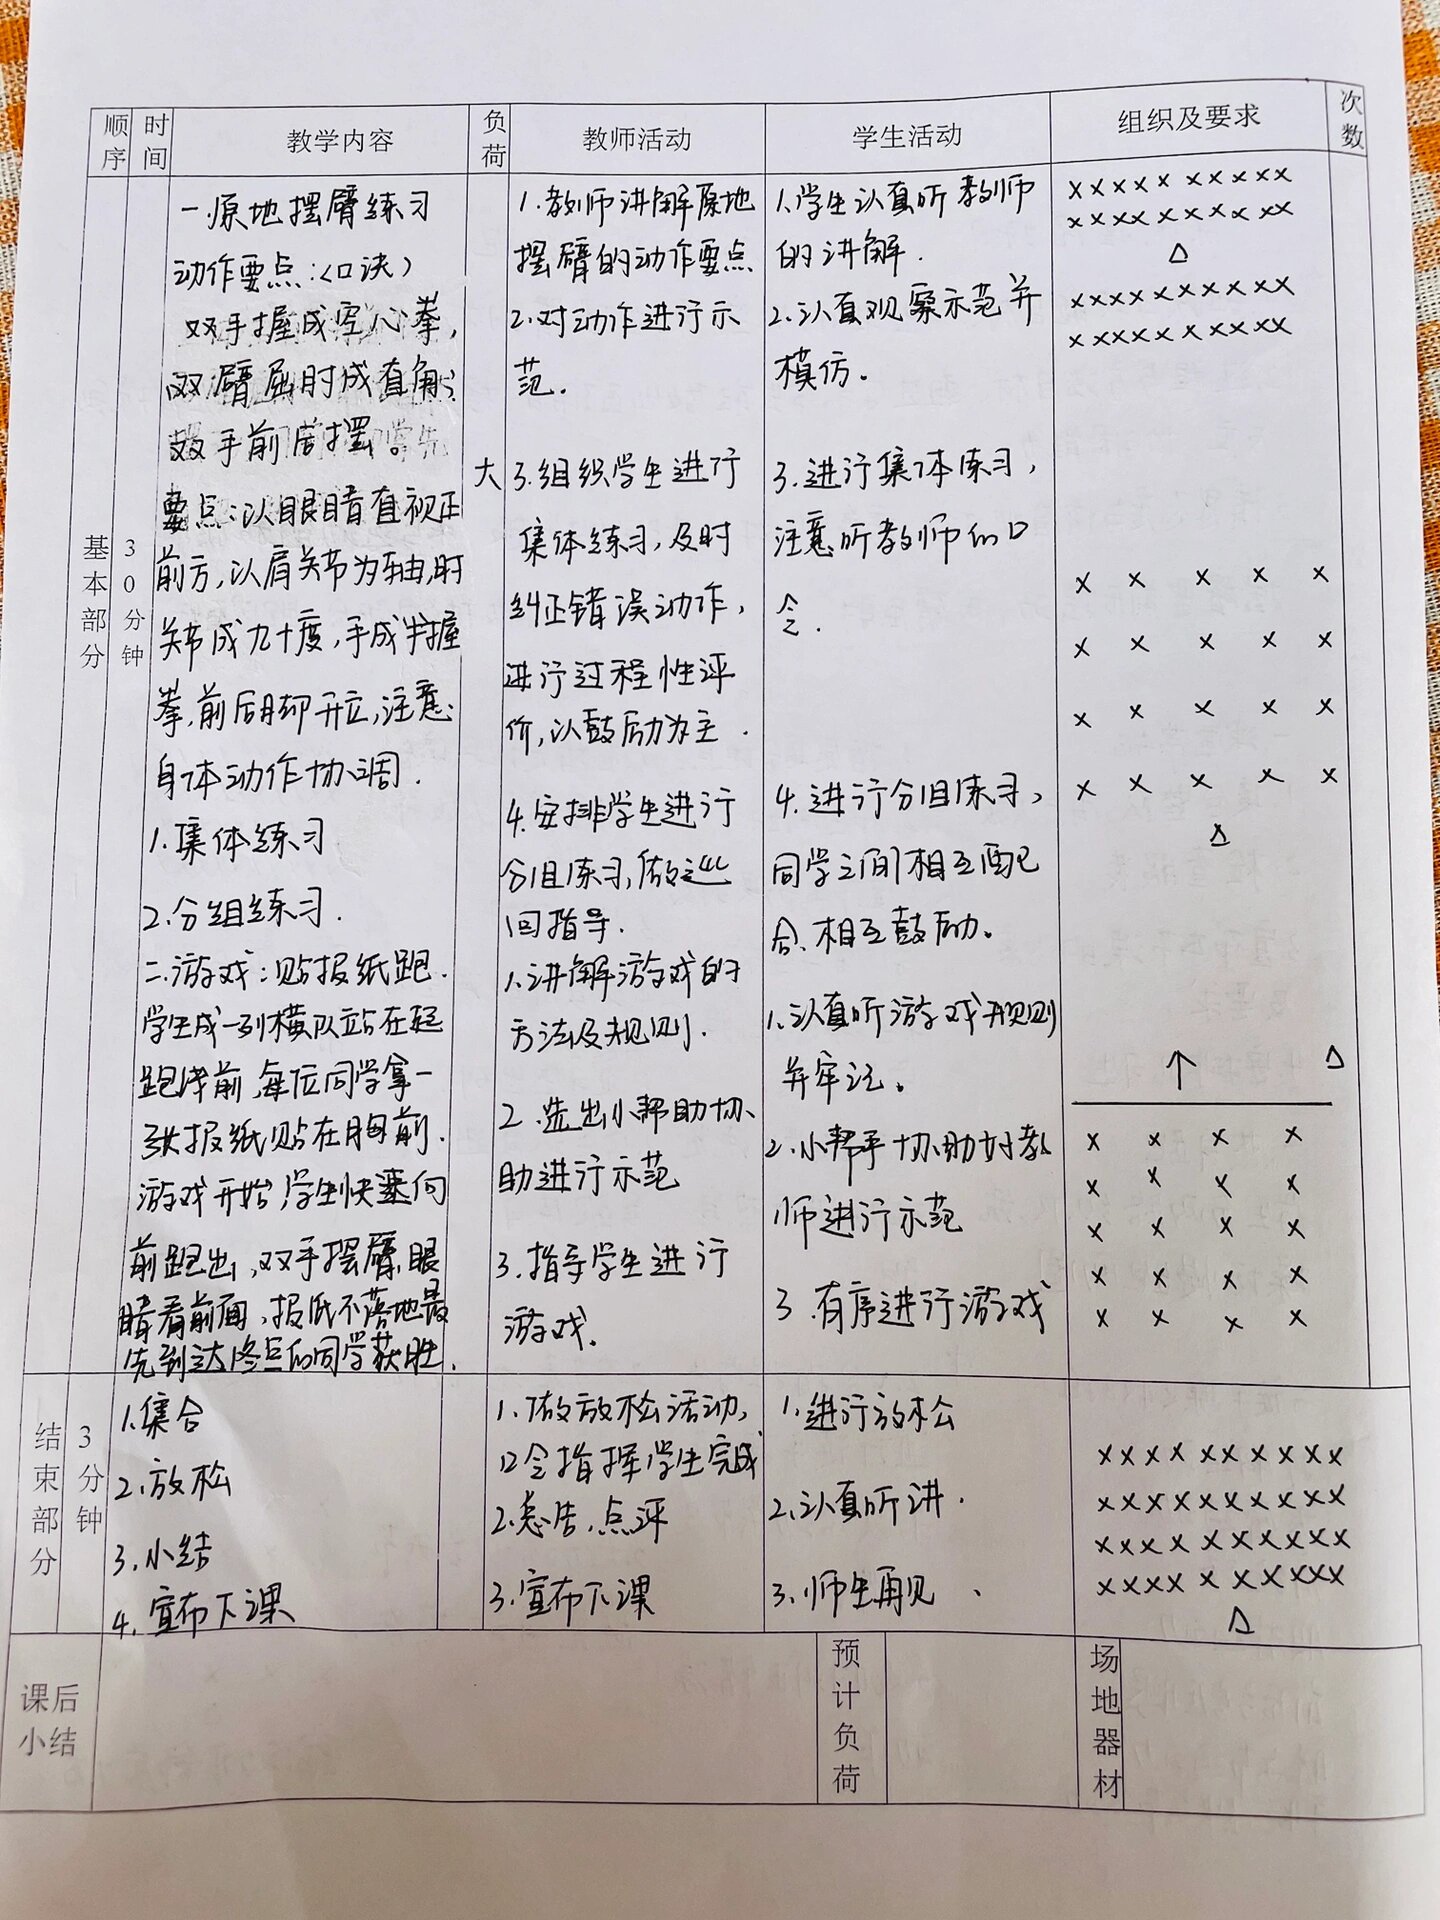 顺序 时间 教学内容 负荷 教师活动 学生活动 组织及要求 次数
基本部分
30分钟
一.原地摆臂练习
动作要点:(口诀)
双手握成空心拳,
双臂屈肘成直角;
双手前后摆。
要点:以眼睛直视正
前方,以肩关节为轴,肘
关节成九十度,手成半握
拳,前后脚开立,注意
身体动作协调.
1.集体练习
2.分组练习.
二.游戏:贴报纸跑.
学生成一列横队站在起
跑线前,每位同学拿一
张报纸贴在胸前.
游戏开始,学生快速向
前跑出,双手摆臂,眼
睛看前面,报纸不落地最
先到达终点的同学获胜.
大
1.教师讲解原地
摆臂的动作要点
2.对动作进行示
范.
3.组织学生进行
集体练习,及时
纠正错误动作,
进行过程性评
价,以鼓励为主.
4.安排学生进行
分组练习,做巡
回指导.
1.讲解游戏的
方法及规则.
2.选出小帮助协
助进行示范
3.指导学生进行
游戏.
1.学生认真听教师
的讲解.
2.认真观察示范并
模仿.
3.进行集体练习,
注意听教师的口
令.
4.进行分组练习,
同学之间相互配
合、相互鼓励。
1.认真听游戏规则
并牢记。
2.小帮手协助好教
师进行示范
3.有序进行游戏
××××××××××
××××××××××
△
××××××××××
××××××××××
× × × × ×
× × × × ×
× × × × ×
× × × × ×
△
↑ △
× × × ×
× × × ×
× × × ×
× × × ×
× × × ×
结束部分
3分钟
1.集合
2.放松
3.小结
4.宣布下课
1.做放松活动,
口令指挥学生完成
2.总结,点评
3.宣布下课
1.进行放松
2.认真听讲.
3.师生再见、
×××××××××××
×××××××××××
×××××××××××
×××××××××××
△
课后
小结
预计负荷
场地器材